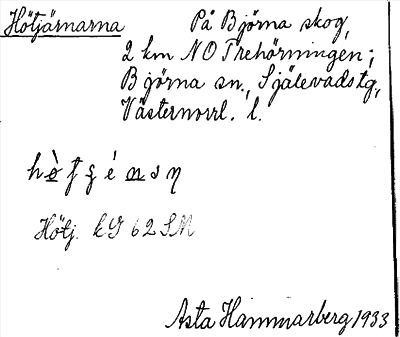 Hötjärnarna På Björna skog,
2 km NO Trehörningen;
Björna sn., Själevads tg,
Västernorrl. l.
Hötj. kG 62 SM
Asta Hammarberg 1933